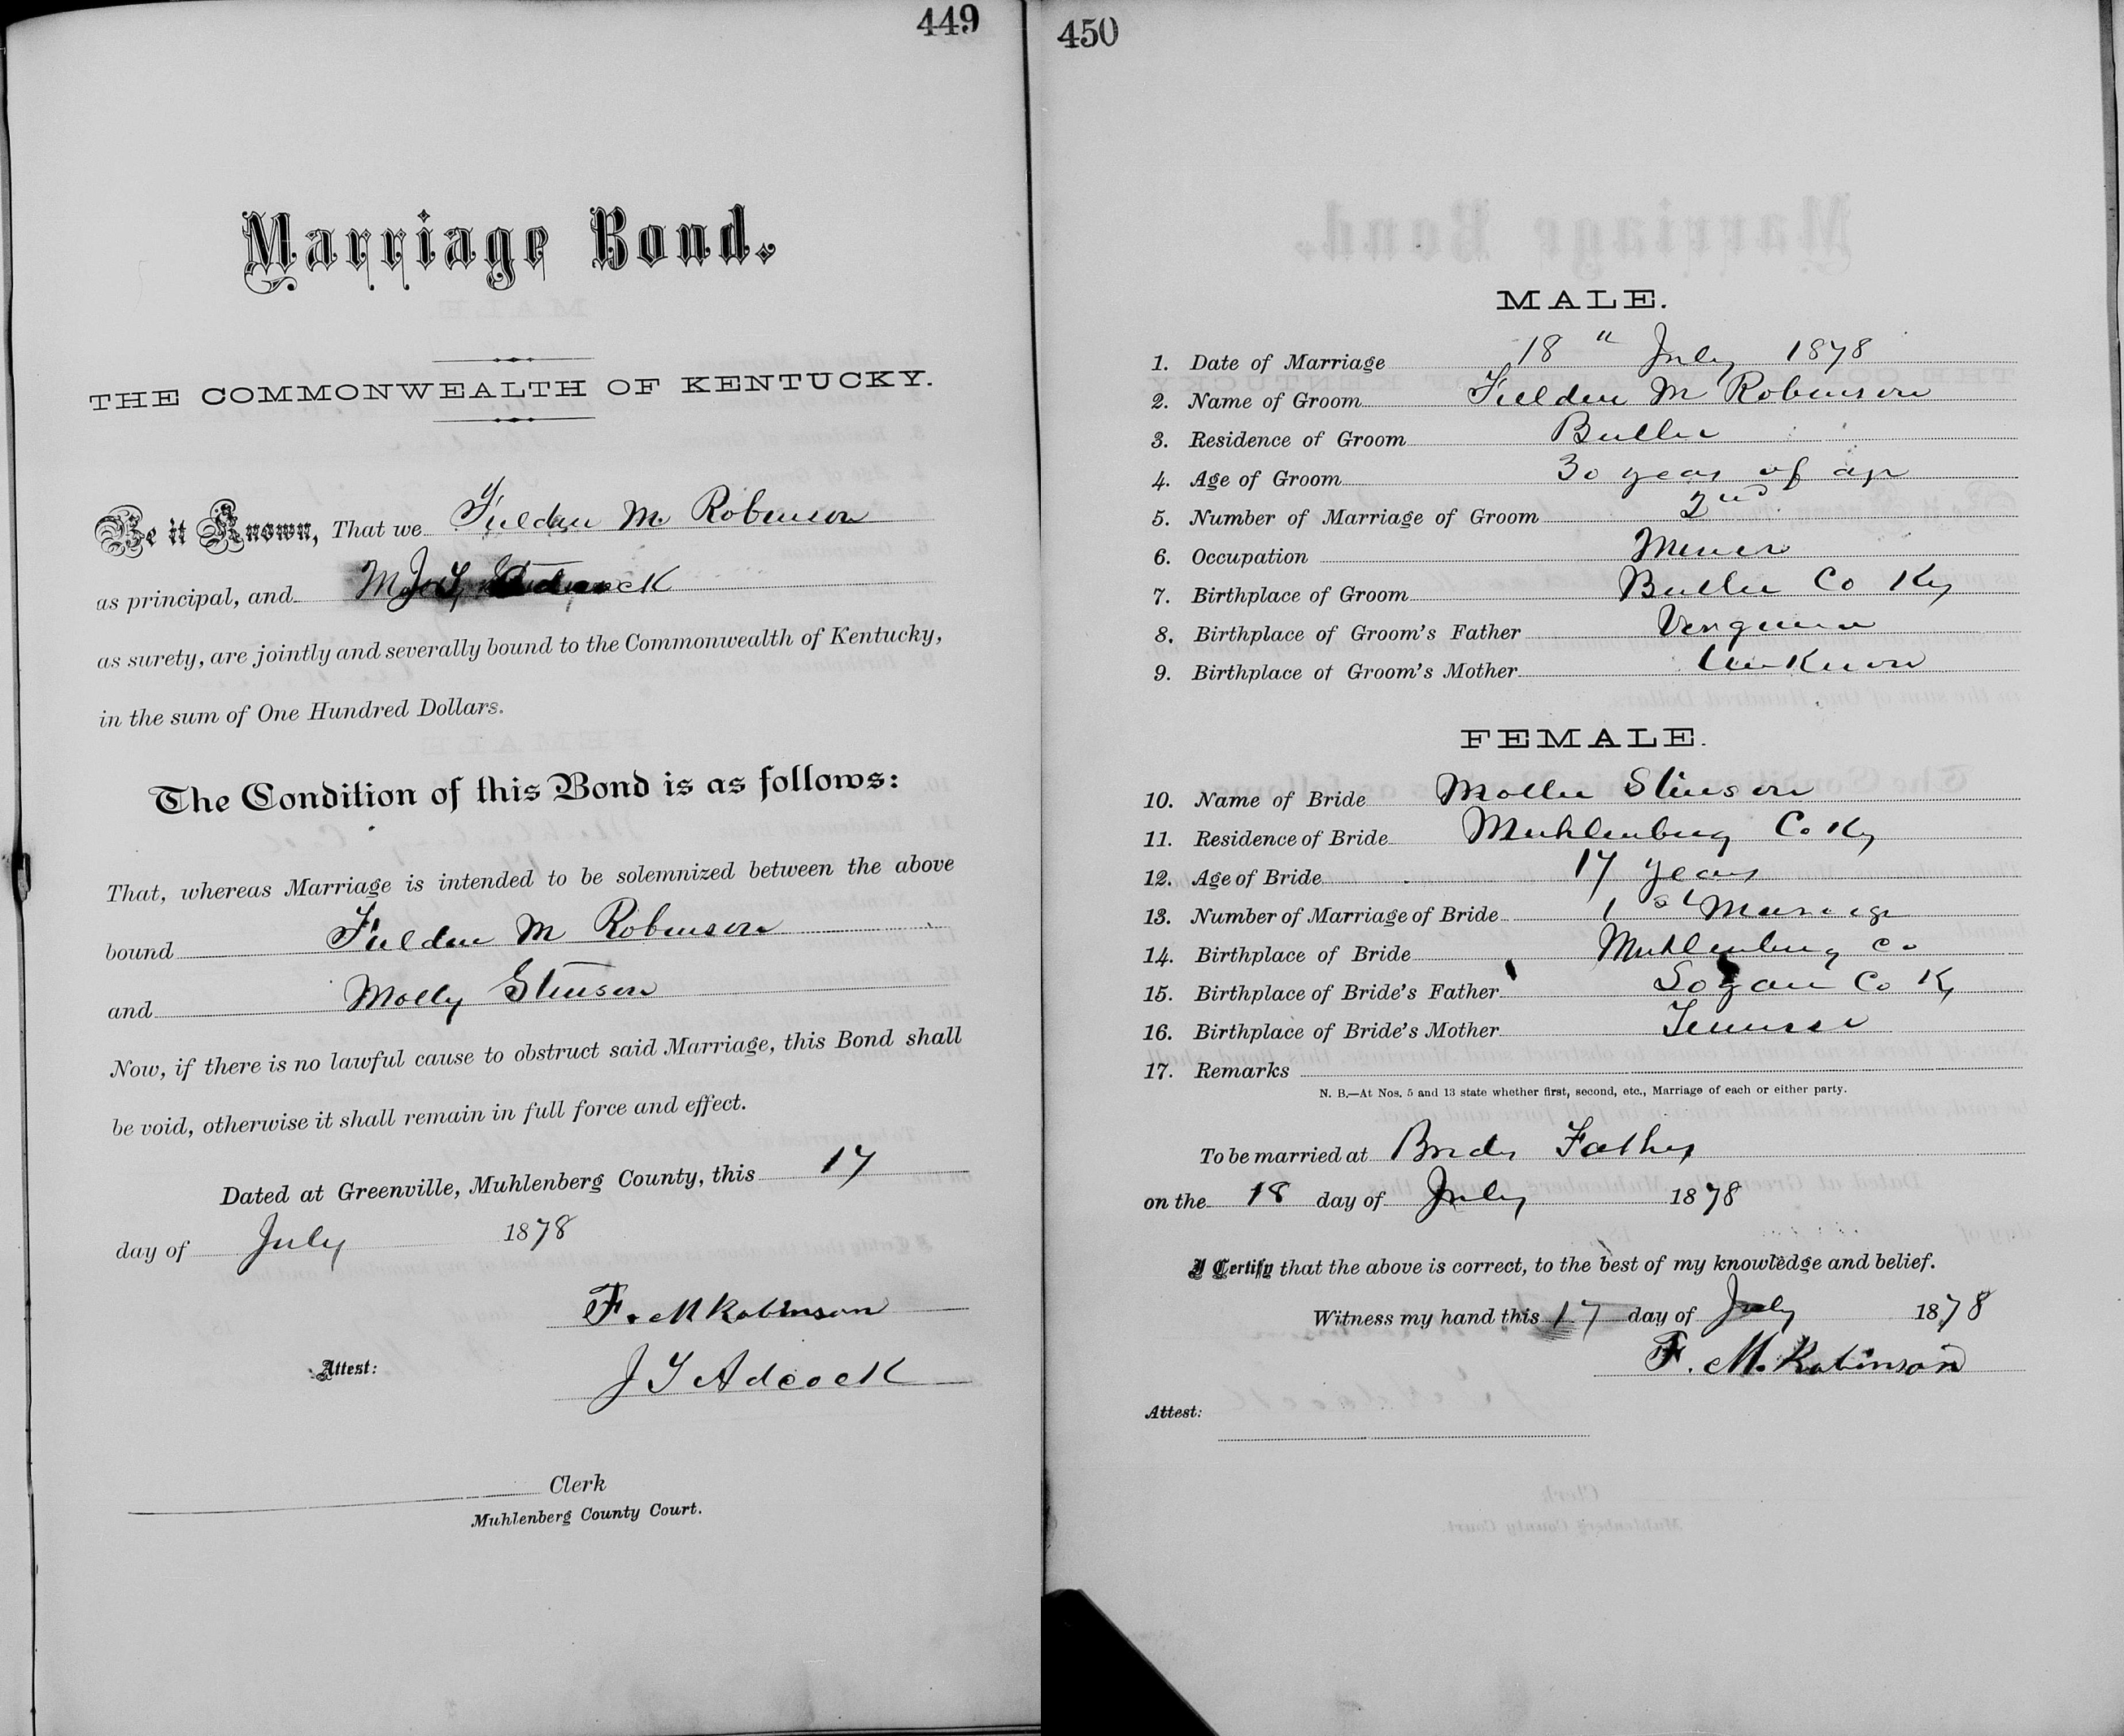 449
Marriage Bond.
THE COMMONWEALTH OF KENTUCKY.
Be it Known, That we Fielden M. Robinson
as principal, and Adcock
as surety, are jointly and severally bound to the Commonwealth of Kentucky,
in the sum of One Hundred Dollars.
The Condition of this Bond is as follows:
That, whereas Marriage is intended to be solemnized between the above
bound Fielden M Robinson
and Molly Stinson
Now, if there is no lawful cause to obstruct said Marriage, this Bond shall
be void, otherwise it shall remain in full force and effect.
Dated at Greenville, Muhlenberg County, this 17
day of July 1878
F. M Robinson
Attest: J Y Adcock
Clerk
Muhlenberg County Court.
450
MALE.
1. Date of Marriage 18" July 1878
2. Name of Groom Fielden M Robinson
3. Residence of Groom Butler
4. Age of Groom 30 years of age
5. Number of Marriage of Groom 2nd
6. Occupation Miner
7. Birthplace of Groom Butler Co Ky
8. Birthplace of Groom's Father Virginia
9. Birthplace of Groom's Mother Unknown
FEMALE.
10. Name of Bride Mollie Stinson
11. Residence of Bride Muhlenburg Co Ky
12. Age of Bride 17 years
13. Number of Marriage of Bride 1st Marriage
14. Birthplace of Bride Muhlenburg Co
15. Birthplace of Bride's Father Logan Co Ky
16. Birthplace of Bride's Mother Tennessee
17. Remarks
N. B.—At Nos. 5 and 13 state whether first, second, etc., Marriage of each or either party.
To be married at Brides Fathers
on the 18 day of July 1878
I Certify that the above is correct, to the best of my knowledge and belief.
Witness my hand this 17 day of July 1878
F. M. Robinson
Attest: